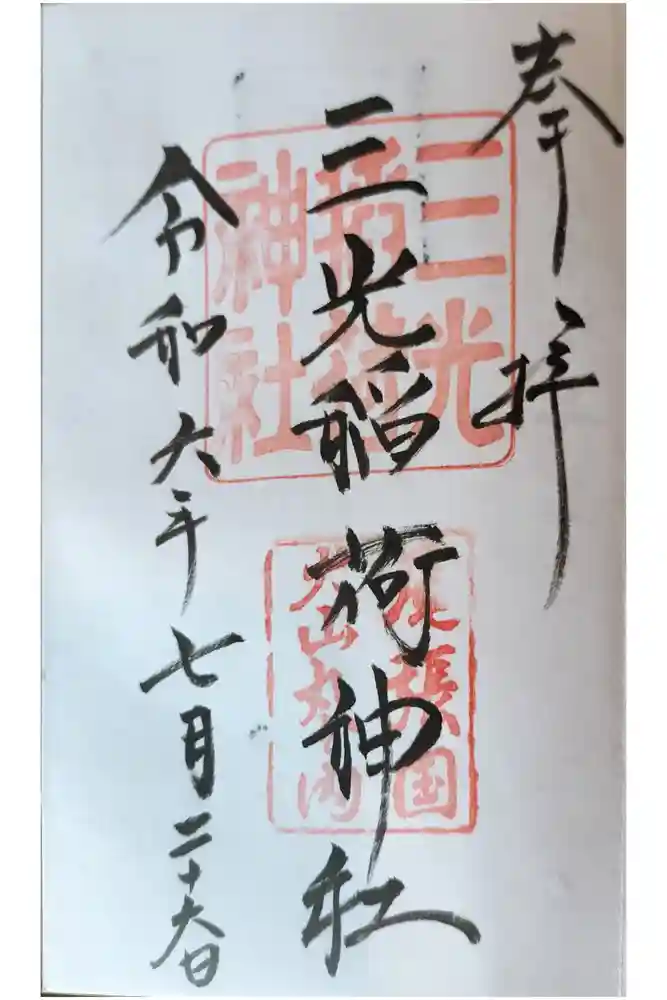 奉拝
三光稲荷神社
令和六年七月二十六日
三光
稲荷
神社
尾張国
犬山丸内